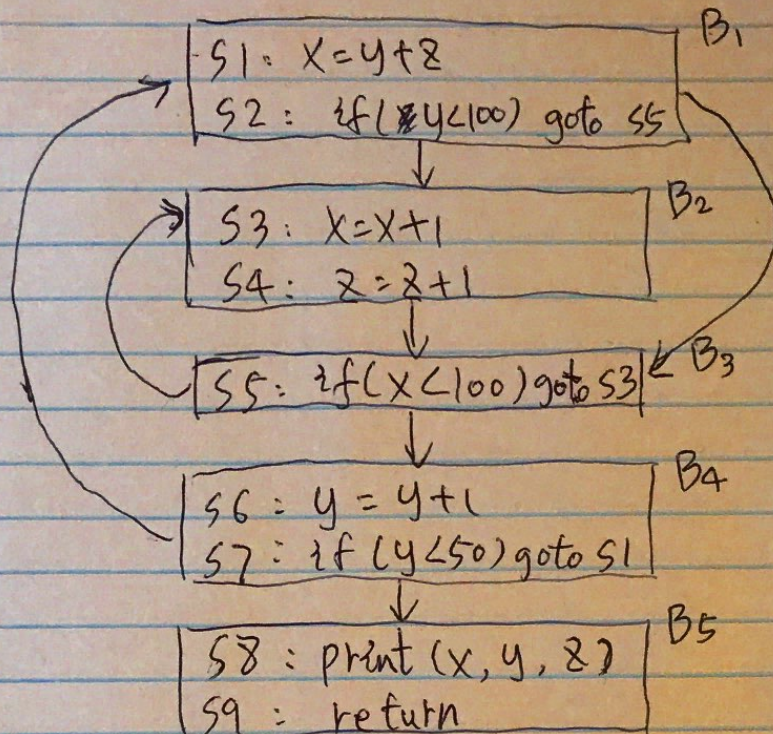 B1
S1: x=y+z
S2: if(y<100) goto S5
B2
S3: x=x+1
S4: z=z+1
B3
S5: if(x<100)goto S3
B4
S6: y=y+1
S7: if(y<50)goto S1
B5
S8: print(x,y,z)
S9: return